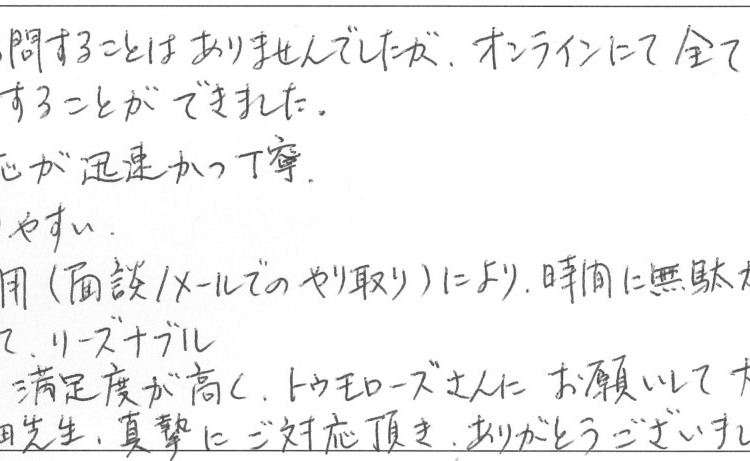 問することはありませんでしたが、オンラインにて全て
することができました。
応が迅速かつ丁寧.
やすい.
用(面談/メールでのやり取り)により、時間に無駄が
て、リーズナブル
満足度が高く、トゥモローズさんにお願いして
田先生、真摯にご対応頂き、ありがとうございまし